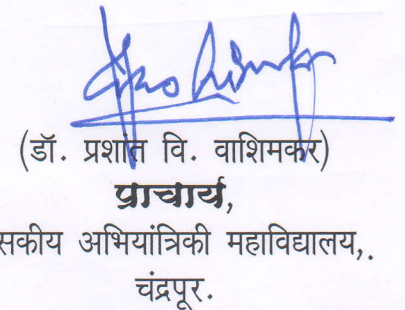 (डॉ. प्रशांत वि. वाशिमकर)
प्राचार्य,
सकीय अभियांत्रिकी महाविद्यालय,.
चंद्रपूर.